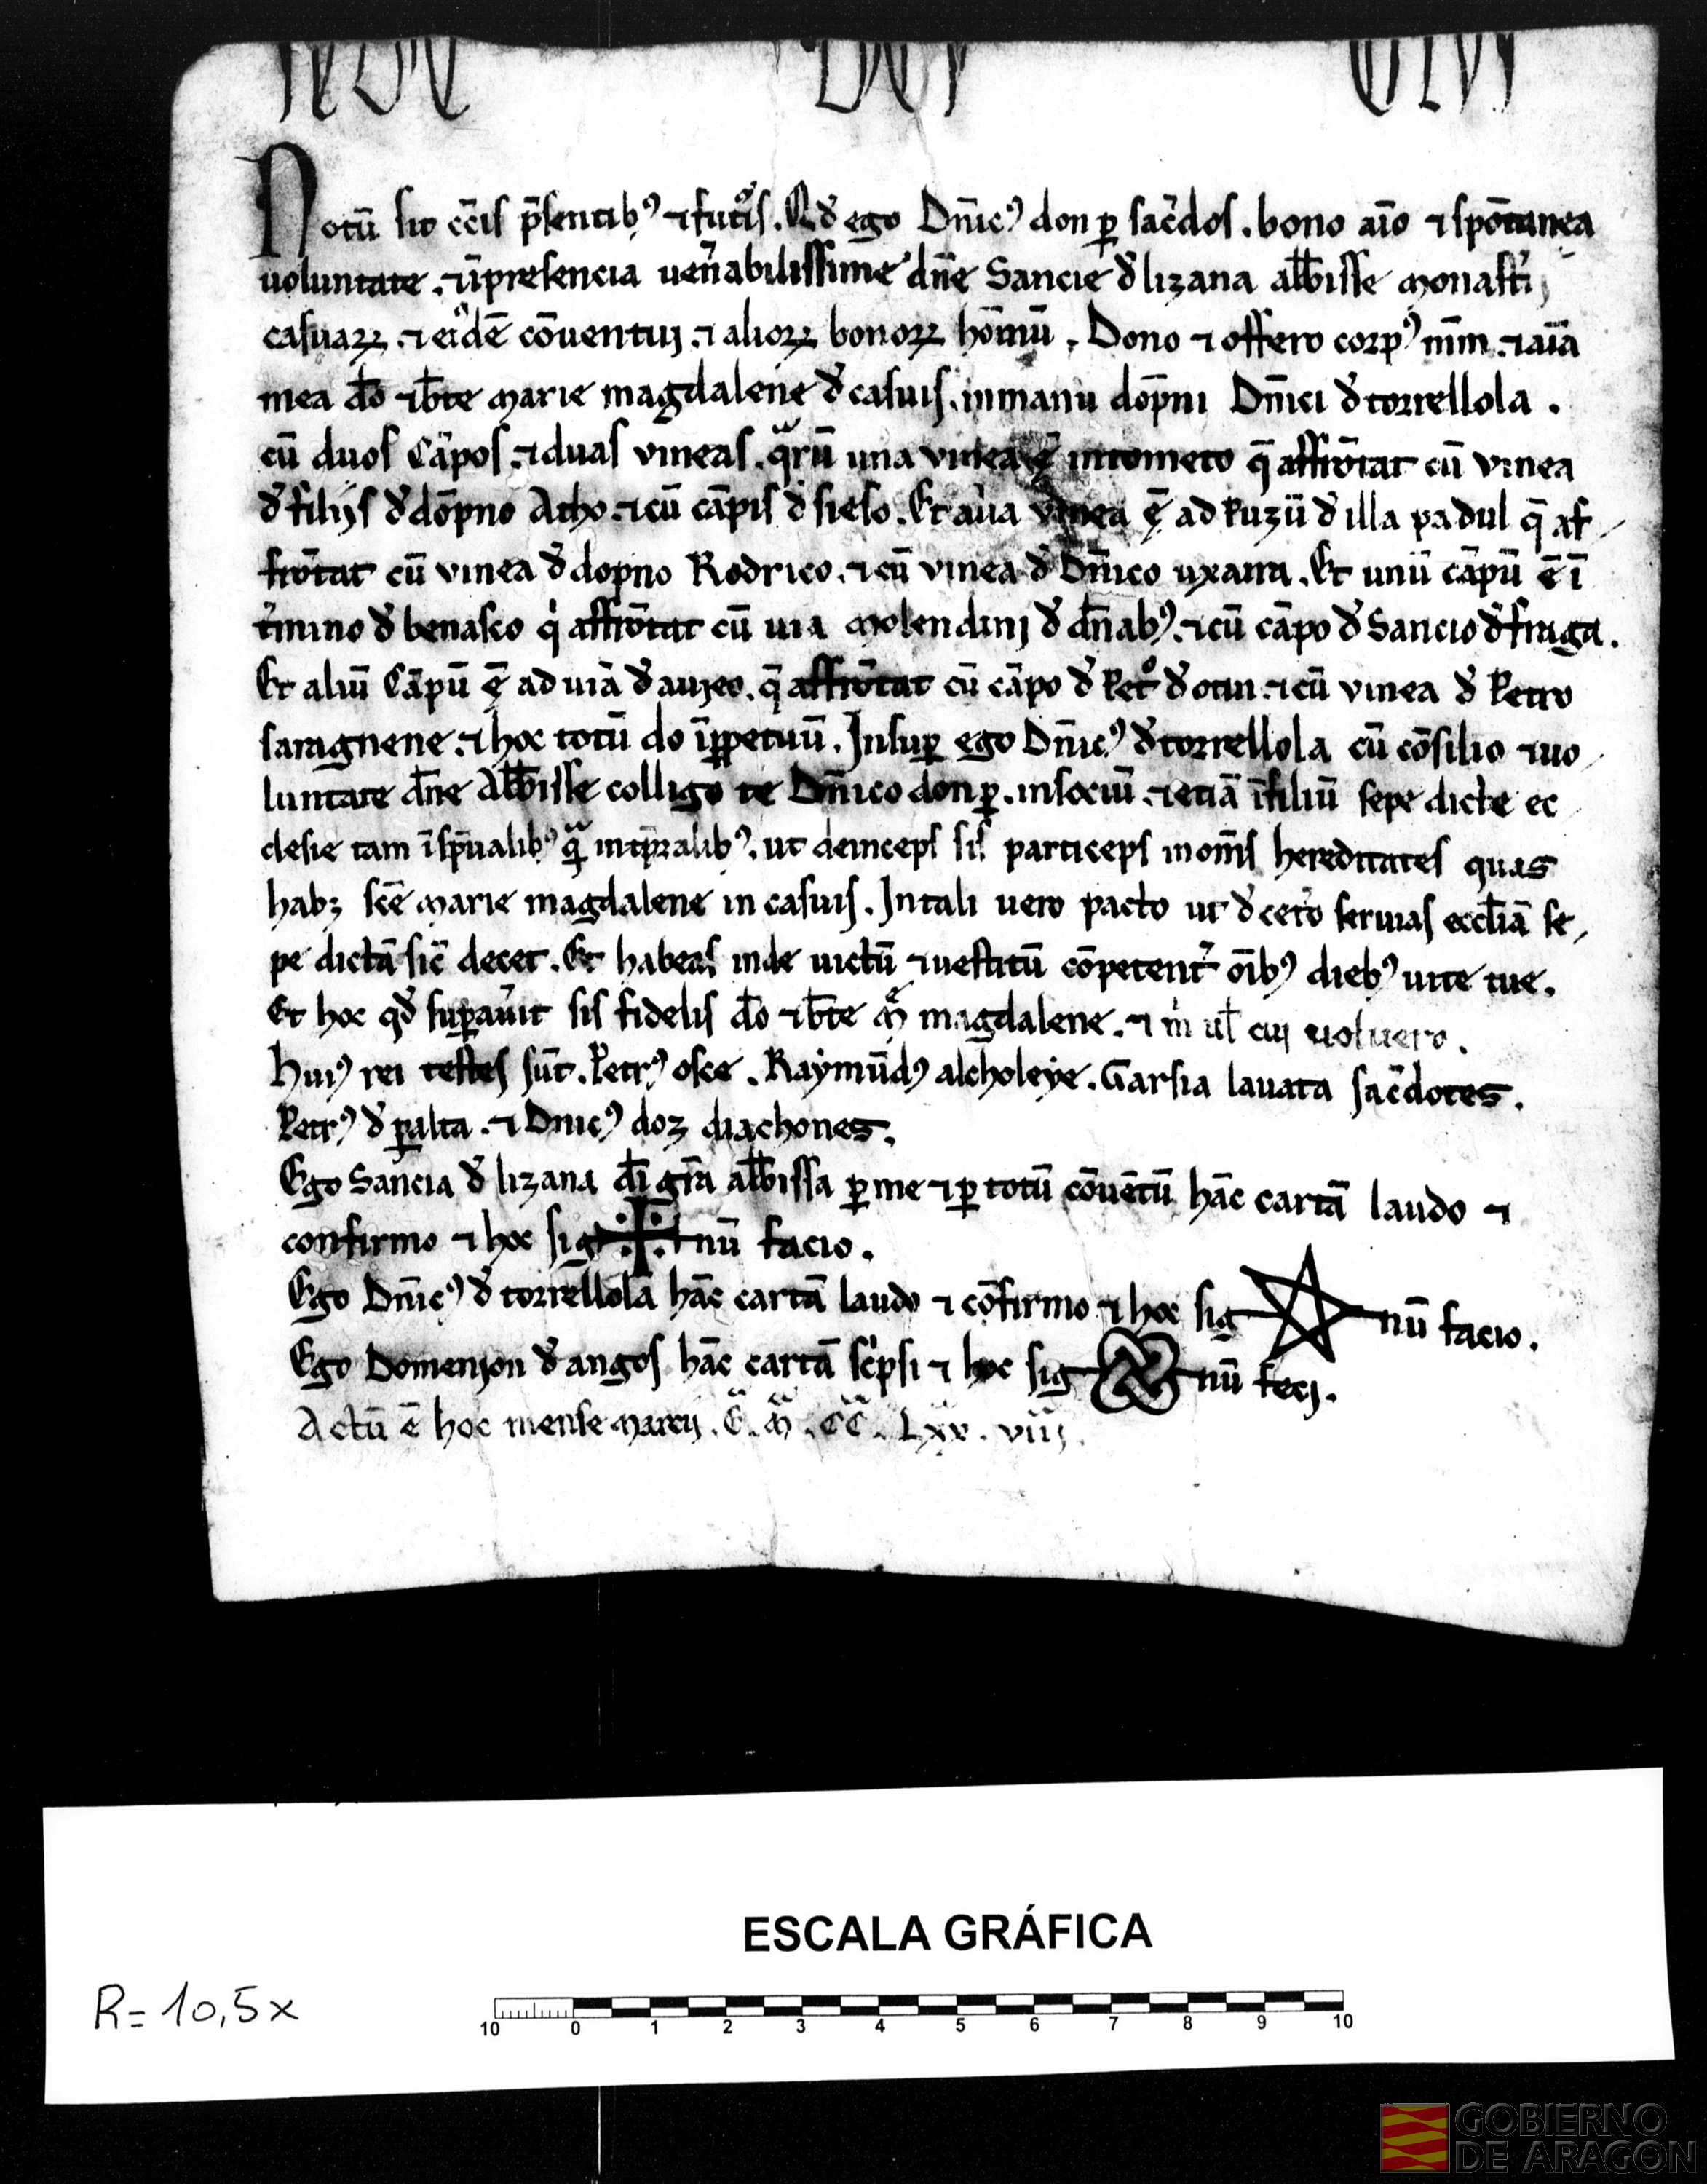 Notū sit cc̄is p̄sentibꝰ ⁊ futͦis. Qd̄ ego Dn̄icꝰ don ꝑ sac̄dos. bono aīo ⁊ spōtanea
uoluntate. ⁊ ī presencia uen̄abilissime dn̄e Sancie đ lizana abb̄isse monast̄ij
casuaꝝ ⁊ eiͦdē cōuentuj ⁊ alioꝝ bonoꝝ hōinū. Dono ⁊ offero corpꝰ mm̄ ⁊ aīā
mea d̄o ⁊ b̄te marie magdalene đ casuis. in manu dop̄ni Dn̄ici đ torrellola.
cū duos cāpos ⁊ duas vineas. qͣrū una vinea ē in tometo q̄ affrōtat cū vinea
đ filijs đ dōpno Atho ⁊ cū cāpis đ sieso. Et al̄ia vinea ē ad Puzū đ illa padul q̄ af
frōtat cū vinea đ dopno Rodrico. ⁊ cū vinea đ Dn̄ico uxarra. Et unū cāpū ē ī
t̄mino đ benasco qͥ affrōtat cū uia molendinj đ dn̄abꝰ. ⁊ cū cāpo đ Sancio đ fraga.
Et aliū Cāpū ē ad uiā đ auzeo. q̄ affrōtat cū cāpo đ Petͦ đ otin. ⁊ cū vinea đ Petro
saragnene. ⁊ hoc totū do īꝑpetuū. Insuꝑ ego Dn̄icꝰ đ torrellola cū cōsilio ⁊ uo
luntate dn̄e Abb̄isse colligo te Dn̄ico don ꝑ. in sociū. ⁊ etiā ī filiū sepe dicte ec
clesie tam ī sp̄ualibꝰ qͣ in tp̄ralibꝰ. ut deinceps sis particeps in om̄s hereditates quas
habꝫ sc̄e marie magdalene in casuis. In tali uero pacto ut đ cet̄o seruias eccl̄iā se
pe dictā sic̄ decet. Et habeas inde uictū ⁊ uestitū cōpetent̄ oībꝰ diebꝰ uite tue.
Et hoc qd̄ suꝑau̓it sis fidelis d̄o ⁊ b̄te mͤ magdalene. ⁊ mͥ ul̄ cui uoluero.
Huiꝰ rei testes sūt. Petrꝰ osce. Raymūdꝰ alcholeye. Garsia lauata sac̄dotes.
Petrꝰ đ ꝑalta. ⁊ Dnicꝰ doz diachones.
Ego Sancia đ lizana d̄i gr̄a abb̄issa ꝑ me ⁊ ꝑ totū cōuētū hāc cartā laudo ⁊
confirmo ⁊ hoc sig nū facio.
Ego Dn̄icꝰ đ torrellola hāc cartā laudo ⁊ cōfirmo ⁊ hoc sig nū facio.
Ego Domenjon đ angos hāc cartā scͥpsi ⁊ hoc sig nū feci.
Actū ē hoc mense marcij. Eͣ. Mͣ. CCͣ. Lxx. viiij.
ESCALA GRÁFICA
R= 10,5x
10 0 1 2 3 4 5 6 7 8 9 10
GOBIERNO
DE ARAGON